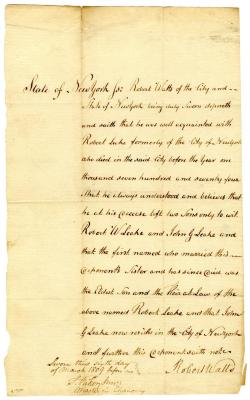 State of NewYork ss: Robert Watts of the City and
State of NewYork being duly Sworn deposeth
and saith that he was well acquainted with
Robert Leake formerly of the City of Newyork
who died in the said City before the Year one
thousand seven hundred and seventy four
that he always understood and believes that
he at his decease left two Sons only to wit
Robert W Leake and John G Leake and
that the first named who married this
Deponents Sister and has since died was
the Eldest Son and the Heir at Law of the
above named Robert Leake and that John
G Leake now resides in the City of Newyork
and further this deponent saith not
Sworn this sixth day
of March 1809 before me
Robert Watts
Master in Chancery